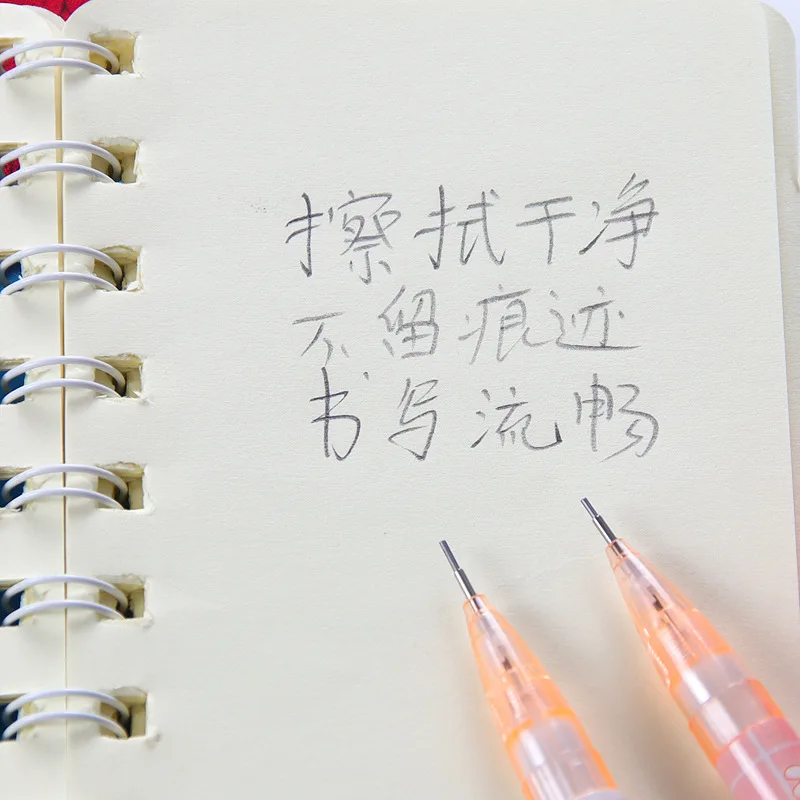 擦拭干净
不留痕迹
书写流畅